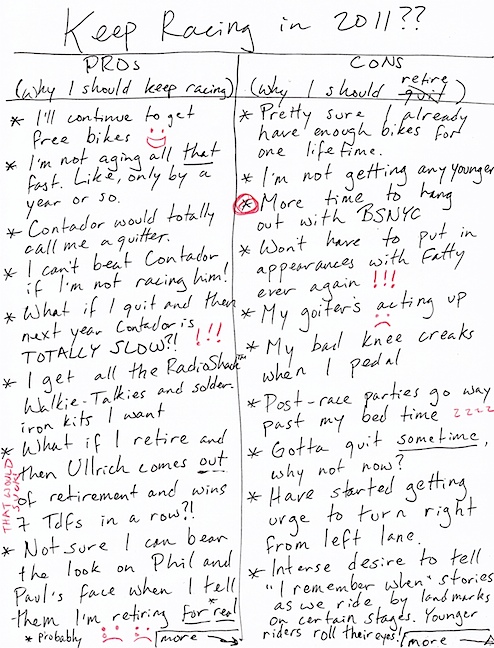 Keep Racing in 2011??
PROs
(why I should keep racing)
* I'll continue to get
free bikes
* I'm not aging all that
fast. Like, only by a
year or so.
* Contador would totally
call me a quitter.
* I can't beat Contador
if I'm not racing him!
* What if I quit and then
next year Contador is
TOTALLY SLOW?! !!!
* I get all the RadioShack™
Walkie-Talkies and solder-
iron kits I want
* What if I retire and
then Ullrich comes out
of retirement and wins
7 TdFs in a row?!
THAT WOULD
SUCK!
* Not sure I can bear
the look on Phil and
Paul's face when I tell
them I'm retiring for *real
* probably
more →
CONS
(why I should retire
quit)
* Pretty sure I already
have enough bikes for
one lifetime.
* I'm not getting any younger
* More time to hang
out with BSNYC
* Won't have to put in
appearances with Fatty
ever again !!!
* My goiter's acting up
* My bad knee creaks
when I pedal
* Post-race parties go way
past my bed time zzzz
* Gotta quit sometime,
why not now?
* Have started getting
urge to turn right
from left lane.
* Intense desire to tell
"I remember when" stories
as we ride by landmarks
on certain stages. Younger
riders roll their eyes!
more →